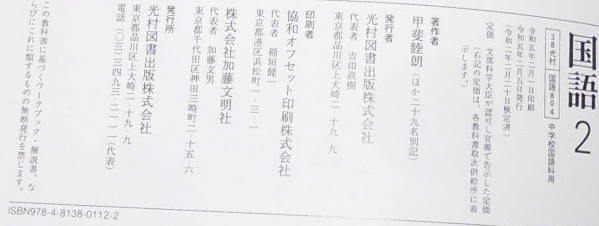 国語 2
38光村 国語804 中学校国語科用
令和五年二月一日印刷
令和五年二月五日発行
(令和二年二月二十日検定済)
定価 文部科学大臣が認可し官報で告示した定価
(右記の定価は、各教科書取次供給所に表
示します。)
著作者
甲斐睦朗 (ほか二十九名別記)
発行者
光村図書出版株式会社
代表者 吉田直樹
東京都品川区上大崎二-十九-九
印刷者
協和オフセット印刷株式会社
代表者 稲垣健一
東京都港区浜松町一-三-一
株式会社加藤文明社
代表者 加藤文男
東京都千代田区神田三崎町二-十五-六
発行所
光村図書出版株式会社
東京都品川区上大崎二-十九-九
電話 (〇三)三四九三-二一一一(代表)
この教科書に基づくワークブック・解説書、な
らびにこれに類するものの無断発行を禁じます。
ISBN978-4-8138-0112-2